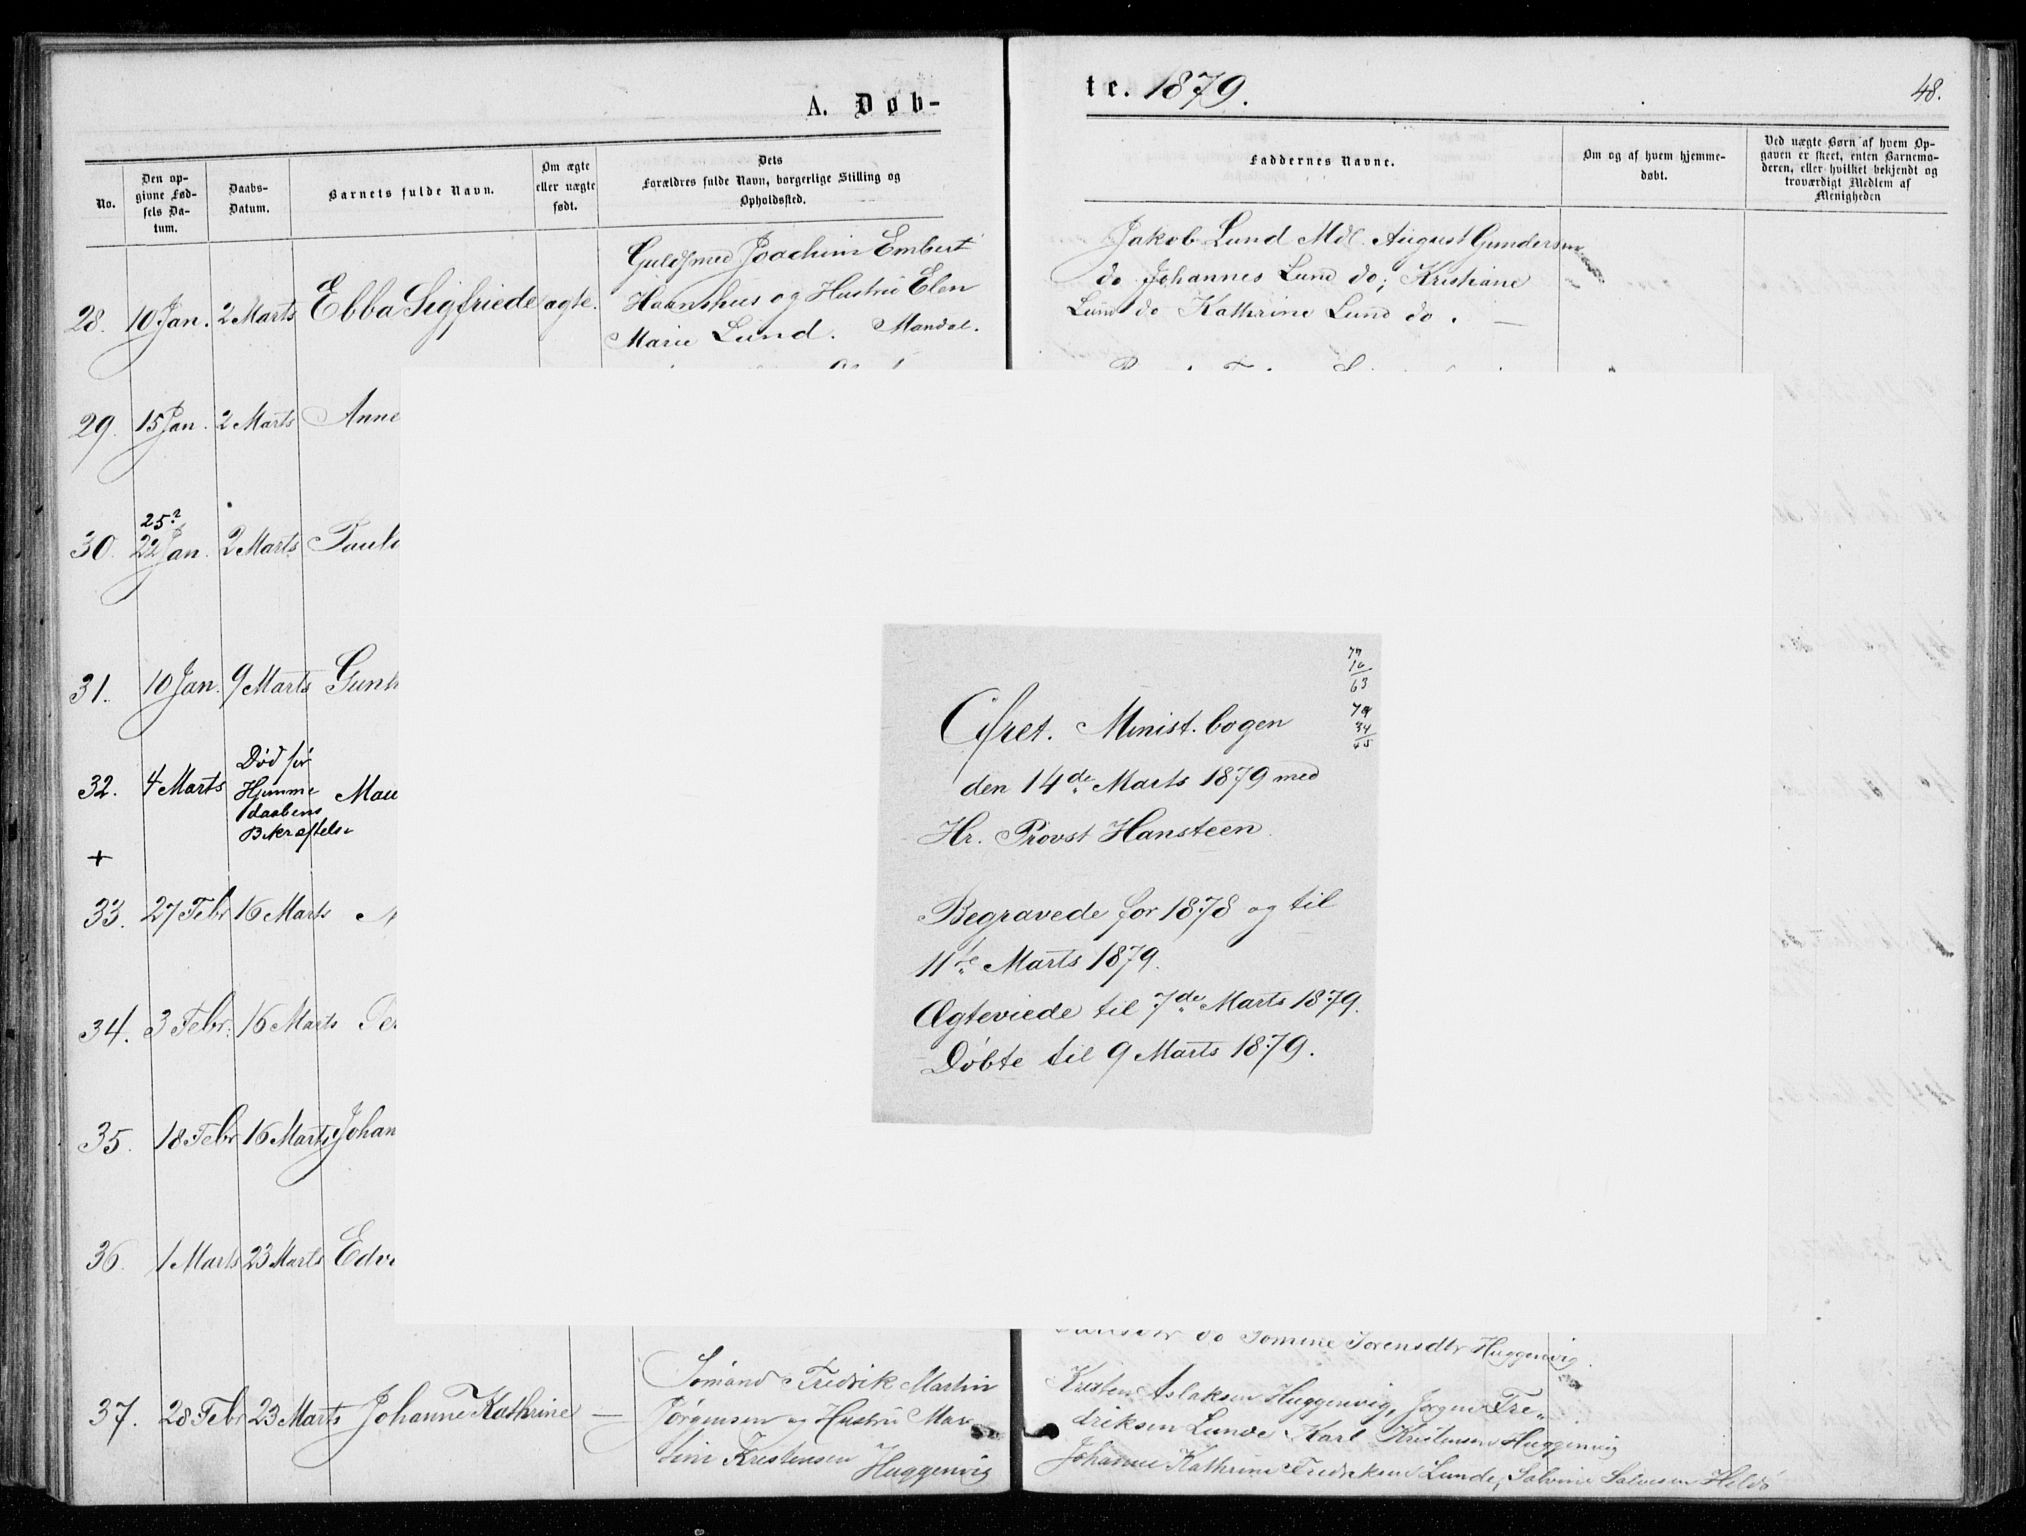 A. Døb-
No.
Den op-
givne Fød-
sels Da-
tum.
Daabs-
Datum.
Barnets fulde Navn.
Om ægte
eller uægte
født.
Dets
Forældres fulde Navn, borgerlige Stilling og
Opholdssted.
28. 10 Jan. 2 Marts Ebba Sigfriede ægte.
Guldsmed Joachim Embert
Haanshus og Hustru Elen
Marie Lund. Mandal.
29. 15 Jan. 2 Marts Anne
25?
30. 22 Jan. 2 Marts
31. 10 Jan. 9 Marts
32. 4 Marts
Død før
Hjemme
daabens
Bekræftelse
+
33. 27 Febr 16 Marts
34. 3 Febr. 16 Marts
35. 18 Febr 16 Marts Johan
36. 1 Marts 23 Marts
37. 28 Febr 23 Marts Johanne Kathrine —
Sømand Fredrik Martin
Jørgensen og Hustru
Kristensen
Huggenvig
te. 1879.
48.
Faddernes Navne.
Om og af hvem hjemme-
døbt.
Ved uægte Børn af hvem Op-
gaven er skeet, enten Barnemo-
deren, eller hvilket bekjendt og
troværdigt Medlem af
Menigheden
Jakob Lund Mdl. August Gundersen
do Johannes Lund do; Kristiane
Lund do Kathrine Lund do. —
79
16
63
79
34
45
Cfret. Minist. bogen
den 14de Marts 1879 med
Hr. Provst Hansteen.
Begravede for 1878 og til
11te Marts 1879.
Ægteviede til 7de Marts 1879.
Døbte til 9 Marts 1879.
do Tomine Sørensdtr Huggenvig.
Kristen Aslaksen Huggenvig, Jørgen Fre-
driksen Lunde Karl Kristensen Huggenvig
Johanne Kathrine Fredriksen Lunde,